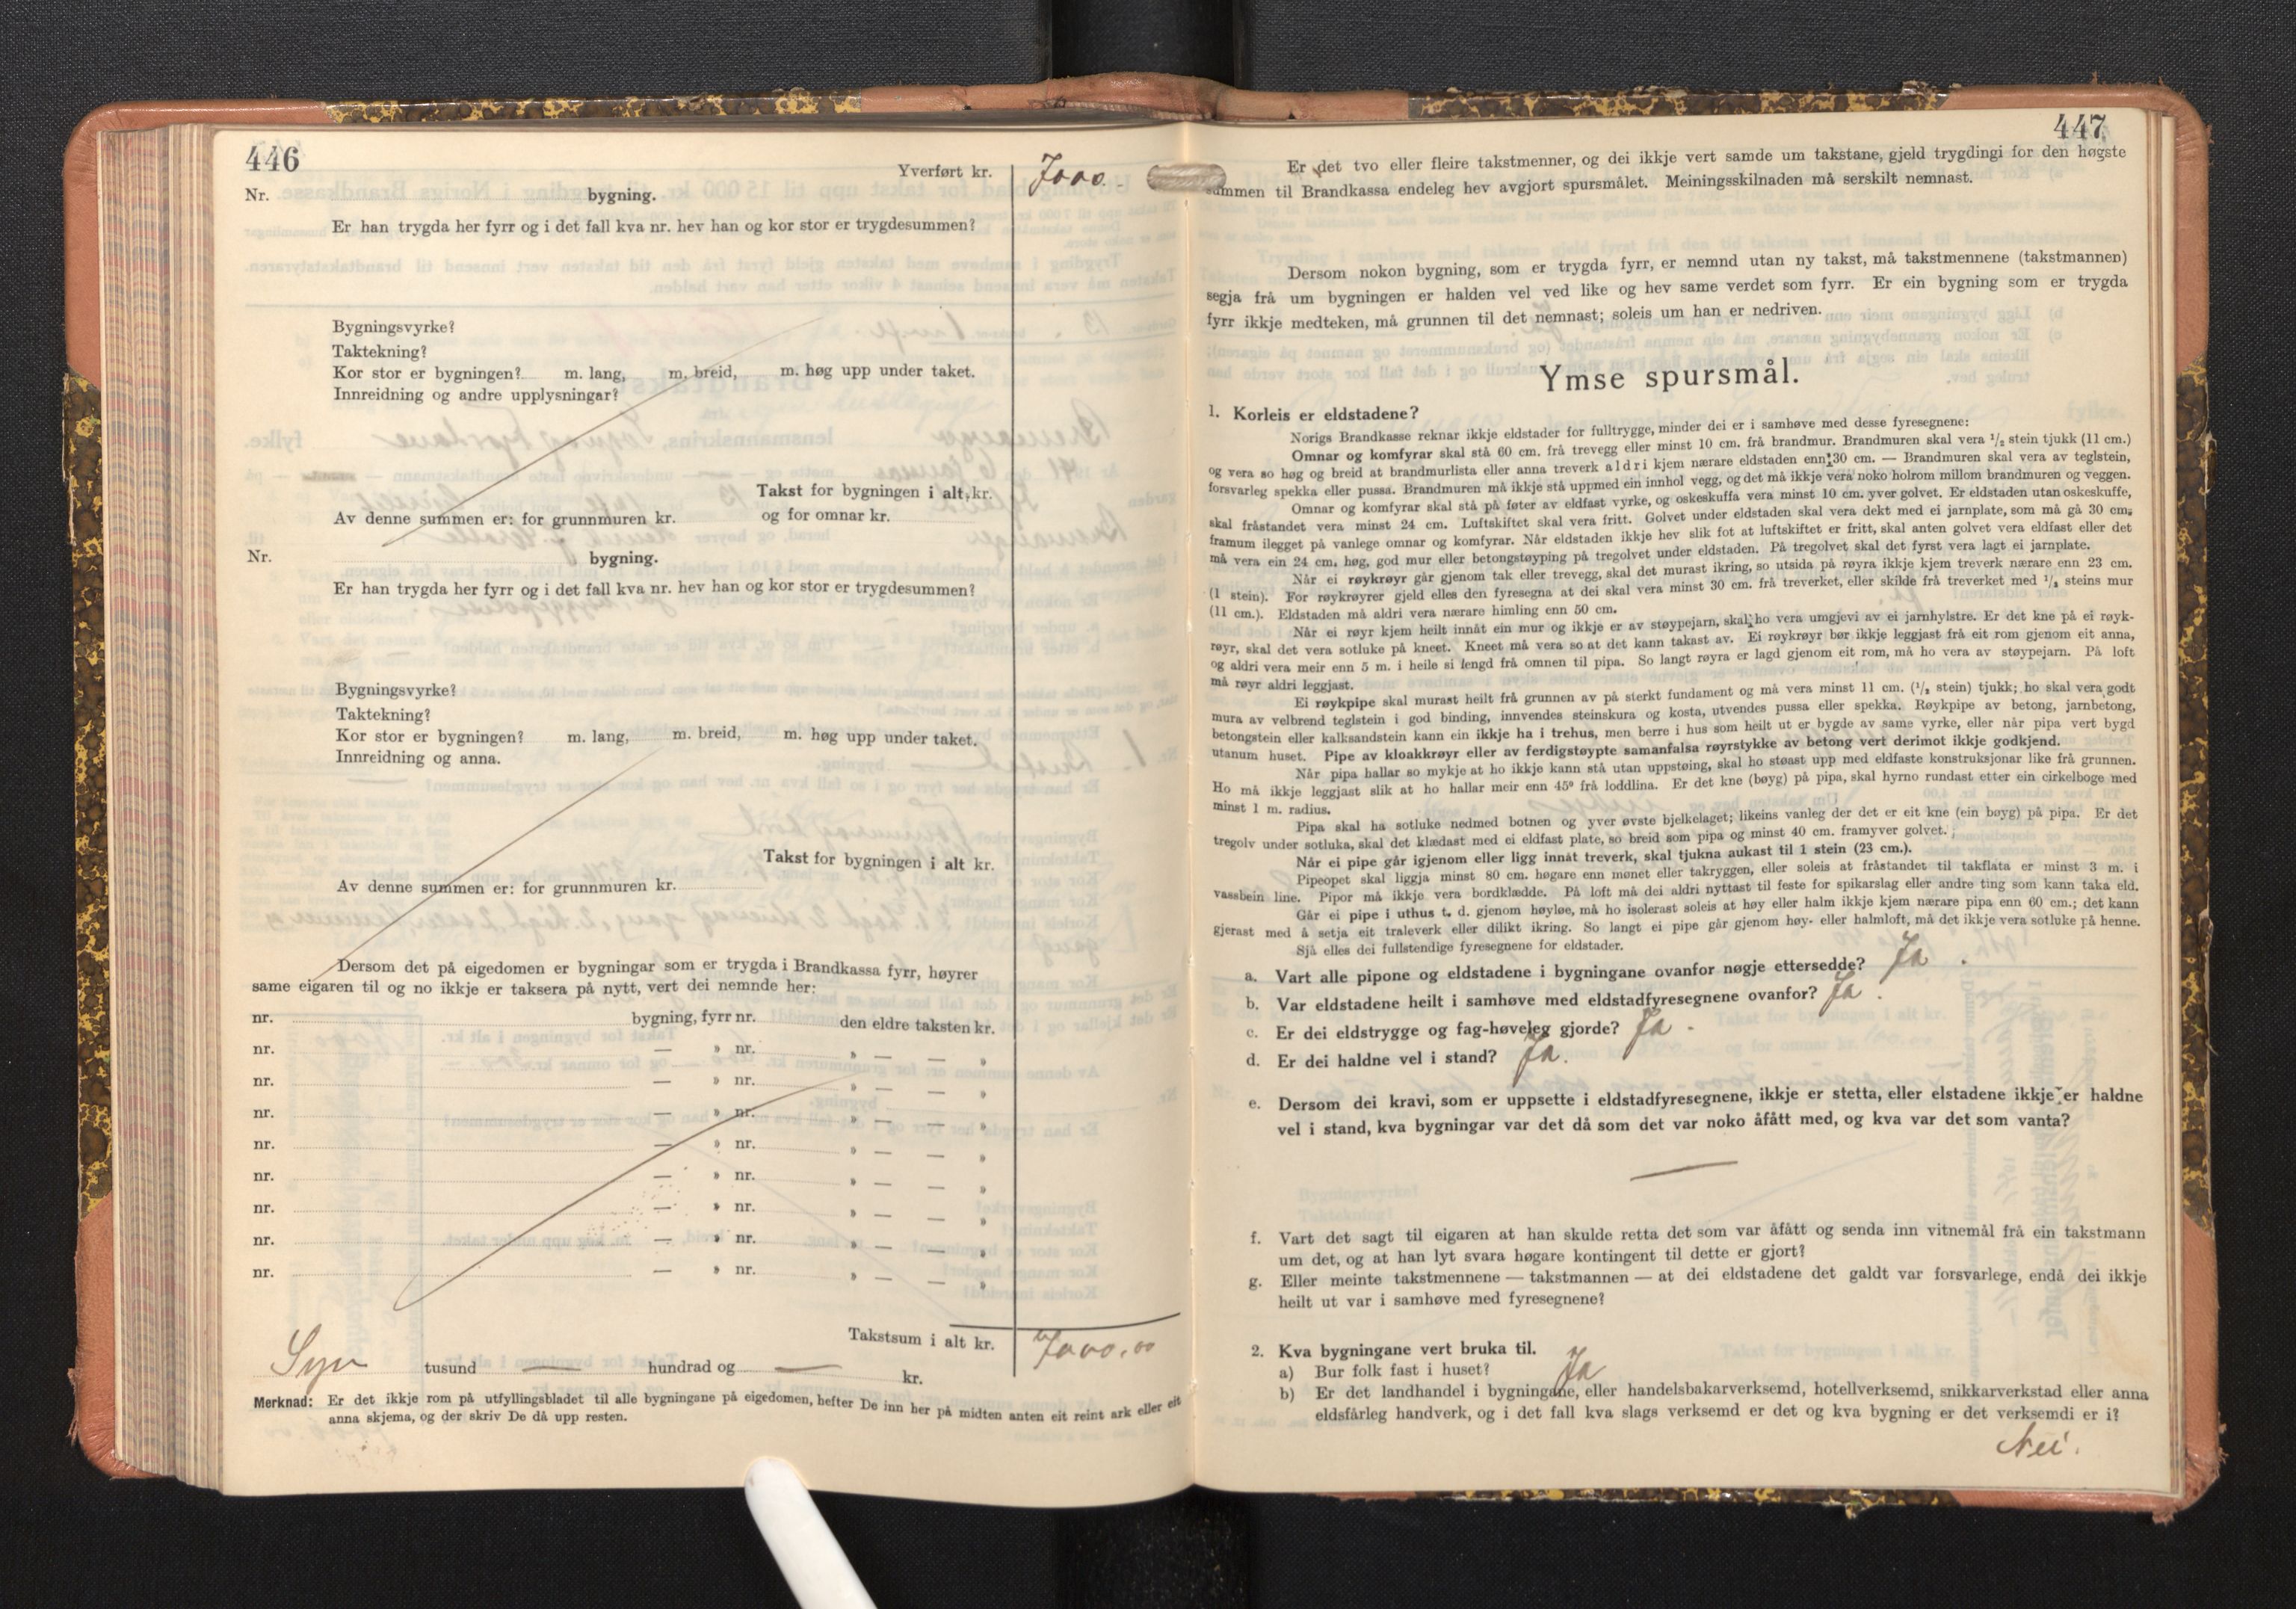 446
Yverført kr. 7000.-
Nr. bygning.
Er han trygda her fyrr og i det fall kva nr. hev han og kor stor er trygdesummen?
Bygningsvyrke?
Taktekning?
Kor stor er bygningen? m. lang, m. breid, m. høg upp under taket.
Innreidning og andre upplysningar?
Takst for bygningen i alt, kr.
Av denne summen er: for grunnmuren kr. og for omnar kr.
Nr. bygning.
Er han trygda her fyrr og i det fall kva nr. hev han og kor stor er trygdesummen?
Bygningsvyrke?
Taktekning?
Kor stor er bygningen? m. lang, m. breid, m. høg upp under taket.
Innreidning og anna.
Takst for bygningen i alt kr.
Av denne summen er: for grunnmuren kr.
Dersom det på eigedomen er bygningar som er trygda i Brandkassa fyrr, høyrer
same eigaren til og no ikkje er taksera på nytt, vert dei nemnde her:
nr. bygning, fyrr nr. den eldre taksten kr.
nr. — » nr. » — — »
nr. — » nr. » — — »
nr. — » nr. » — — »
nr. — » nr. » — — »
nr. — » nr. » — — »
nr. — » nr. » — — »
nr. — » nr. » — — »
nr. — » nr. » — — »
Takstsum i alt kr. 7000.00
Syv tusund — hundrad og — kr.
Merknad: Er det ikkje rom på utfyllingsbladet til alle bygningane på eigedomen, hefter De inn her på midten anten eit reint ark eller eit
anna skjema, og der skriv De då upp resten.
447
Er det tvo eller fleire takstmenner, og dei ikkje vert samde um takstane, gjeld trygdingi for den høgste
summen til Brandkassa endeleg hev avgjort spursmålet. Meiningsskilnaden må serskilt nemnast.
Dersom nokon bygning, som er trygda fyrr, er nemnd utan ny takst, må takstmennene (takstmannen)
segja frå um bygningen er halden vel ved like og hev same verdet som fyrr. Er ein bygning som er trygda
fyrr ikkje medteken, må grunnen til det nemnast; soleis um han er nedriven.
Ymse spursmål.
1. Korleis er eldstadene?
Norigs Brandkasse reknar ikkje eldstader for fulltrygge, minder dei er i samhøve med desse fyresegnene:
Omnar og komfyrar skal stå 60 cm. frå trevegg eller minst 10 cm. frå brandmur. Brandmuren skal vera 1/2 stein tjukk (11 cm.)
og vera so høg og breid at brandmurlista eller anna treverk aldri kjem nærare eldstaden enn 30 cm. — Brandmuren skal vera av teglstein,
forsvarleg spekka eller pussa. Brandmuren må ikkje stå uppmed ein innhol vegg, og det må ikkje vera noko holrom millom brandmuren og veggen.
Omnar og komfyrar skal stå på føter av eldfast vyrke, og oskeskuffa vera minst 10 cm. yver golvet. Er eldstaden utan oskeskuffe,
skal fråstandet vera minst 24 cm. Luftskiftet skal vera fritt. Golvet under eldstaden skal vera dekt med ei jarnplate, som må gå 30 cm.
framum ilegget på vanlege omnar og komfyrar. Når eldstaden ikkje hev slik fot at luftskiftet er fritt, skal anten golvet vera eldfast eller det
må vera ein 24 cm. høg, god mur eller betongstøyping på tregolvet under eldstaden. På tregolvet skal det fyrst vera lagt ei jarnplate.
Når ei røykrøyr går gjenom tak eller trevegg, skal det murast ikring, so utsida på røyra ikkje kjem treverk nærare enn 23 cm.
(1 stein). For røykrøyrer gjeld elles den fyresegna at dei skal vera minst 30 cm. frå treverket, eller skilde frå treverket med 1/2 steins mur
(11 cm.). Eldstaden må aldri vera nærare himling enn 50 cm.
Når ei røyr kjem heilt innåt ein mur og ikkje er av støypejarn, skal ho vera umgjevi av ei jarnhylstre. Er det kne på ei røyk-
røyr, skal det vera sotluke på kneet. Kneet må vera so at det kann takast av. Ei røykrøyr bør ikkje leggjast frå eit rom gjenom eit anna,
og aldri vera meir enn 5 m. i heile si lengd frå omnen til pipa. So langt røyra er lagd gjenom eit rom, må ho vera av støypejarn. På loft
må røyr aldri leggjast.
Ei røykpipe skal murast heilt frå grunnen av på sterkt fundament og må vera minst 11 cm. (1/2 stein) tjukk; ho skal vera godt
mura av velbrend teglstein i god binding, innvendes steinskura og kosta, utvendes pussa eller spekka. Røykpipe av betong, jarnbetong,
betongstein eller kalksandstein kann ein ikkje ha i trehus, men berre i hus som heilt ut er bygde av same vyrke, eller når pipa vert bygd
utanum huset. Pipe av kloakkrøyr eller av ferdigstøypte samanfalsa røyrstykke av betong vert derimot ikkje godkjend.
Når pipa hallar so mykje at ho ikkje kann stå utan uppstøing, skal ho støast upp med eldfaste konstruksjonar like frå grunnen.
Ho må ikkje leggjast slik at ho hallar meir enn 45° frå loddlina. Er det kne (bøyg) på pipa, skal hyrno rundast etter ein cirkelboge med
minst 1 m. radius.
Pipa skal ha sotluke nedmed botnen og yver øvste bjelkelaget; likeins vanleg der det er eit kne (ein bøyg) på pipa. Er det
tregolv under sotluka, skal det klædast med ei eldfast plate, so breid som pipa og minst 40 cm. framyver golvet.
Når ei pipe går igjenom eller ligg innåt treverk, skal tjukna aukast til 1 stein (23 cm.).
Pipeopet skal liggja minst 80 cm. høgare enn mønet eller takryggen, eller soleis at fråstandet til takflata er minst 3 m. i
vassbein line. Pipor må ikkje vera bordklædde. På loft må dei aldri nyttast til feste for spikarslag eller andre ting som kann taka eld.
Går ei pipe i uthus t. d. gjenom høyløe, må ho isolerast soleis at høy eller halm ikkje kjem nærare pipa enn 60 cm.; det kann
gjerast med å setja eit traleverk eller dilikt ikring. So langt ei pipe går gjenom høy- eller halmloft, må det ikkje vera sotluke på henne.
Sjå elles dei fullstendige fyresegnene for eldstader.
a. Vart alle pipone og eldstadene i bygningane ovanfor nøgje ettersedde? Ja.
b. Var eldstadene heilt i samhøve med eldstadfyresegnene ovanfor? Ja.
c. Er dei eldstrygge og fag-høveleg gjorde? Ja.
d. Er dei haldne vel i stand? Ja.
e. Dersom dei kravi, som er uppsette i eldstadfyresegnene, ikkje er stetta, eller elstadene ikkje er haldne
vel i stand, kva bygningar var det då som det var noko åfått med, og kva var det som vanta?
—
f. Vart det sagt til eigaren at han skulde retta det som var åfått og senda inn vitnemål frå ein takstmann
um det, og at han lyt svara høgare kontingent til dette er gjort?
g. Eller meinte takstmennene — takstmannen — at dei eldstadene det galdt var forsvarlege, endå dei ikkje
heilt ut var i samhøve med fyresegnene?
2. Kva bygningane vert bruka til.
a) Bur folk fast i huset? Ja
b) Er det landhandel i bygningane, eller handelsbakarverksemd, hotellverksemd, snikkarverkstad eller anna
eldsfårleg handverk, og i det fall kva slags verksemd er det og kva bygning er det verksemdi er i?
Nei.